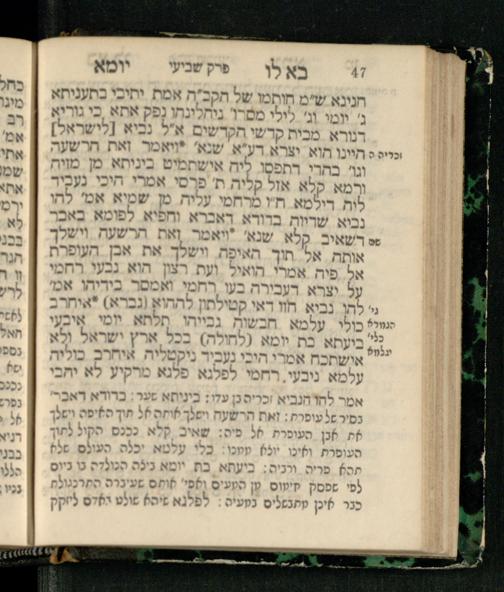 47 בא לו פרק שביעי יומא
חנינא ש״מ חותמו של הקב״ה אמת יתיבי בתעניתא
ג׳ יומי וג׳ לילי מסרו׳ ניהלינהו נפק אתא כי גוריא
דנורא מבית קדשי הקדשים א״ל נביא [לישראל]
היינו הוא יצרא דע״א שנא׳ *ויאמר זאת הרשעה
זכריה ה
וגו׳ בהדי דתפסו׳ ליה אישתמיט ביניתא מן מזיה
ורמא קלא אזל קליה ת׳ פרסי אמרי היכי נעביד
ליה דילמא ח״ו מרחמי עליה מן שמיא אמ׳ להו
נביא שדיוה בדודא דאברא וחפיא לפומא באבר
דשאיב קלא שנא׳ *ויאמר זאת הרשעה וישלך
שם
אותה אל תוך האיפה וישלך את אבן העופרת
אל פיה אמרי הואיל ועת רצון הוא נבעי רחמי
על יצרא דעבירה בעו רחמי ואמסר בידייהו אמ׳
להו נביא חזו דאי קטילתון לההוא (גברא) *איחרב
גי׳
הגמרא
כלי׳
עלמא
כולי עלמא חבשוה גבייהו תלתא יומי איבעי
ביעתא בת יומא (לחולה) בכל ארץ ישראל ולא
אישתכח אמרי היכי נעביד ניקטליה איחרב כוליה
עלמא ניבעי רחמי לפלגא פלגא מרקיע לא יהבי
אמר להו הנביא זכריה בן עדו: ביניתא שער: בדודא דאבר׳
בסיר של עופרת: זאת הרשעה וישלך אותה אל תוך האיפה וישלך
את אבן העופרת אל פיה: שאיב קלא נכנס הקול לתוך
העופרת ואינו יולא ממנו: כלי עלמא יכלה העולם שלא
תהא פריה ורביה: ביעתא בת יומא בילה הנולדה בו ביום
לפי שפסק חימום מן המעים ואפי׳ אותם שעיברה התרנגולת
כבר אינן מתבשלים במעיה: לפלגא שיהא שולט באדם ליזקק